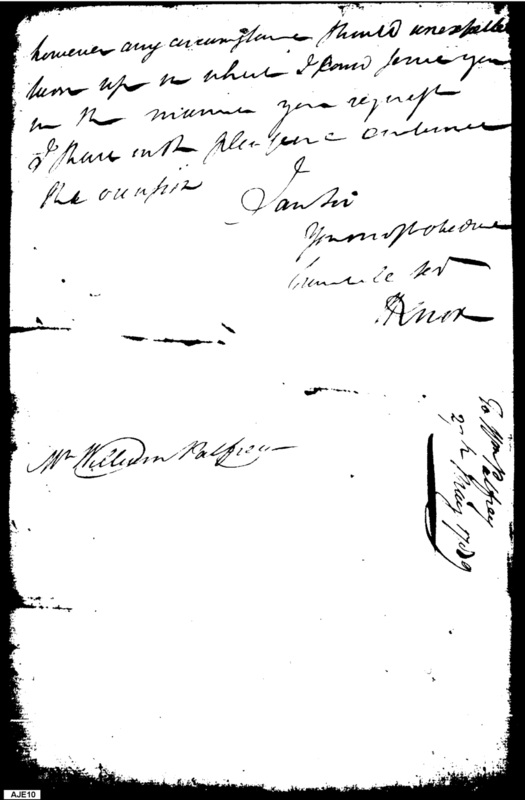 however any circumstance should unexpected
turn up in which I could serve you
in the manner you request
I shall with pleasure embrace
the occasion
I am Sir
Your most obedient
humble ser
HKnox
Mr William Palfrey
To Wm Palfrey
May 1789
AJE10